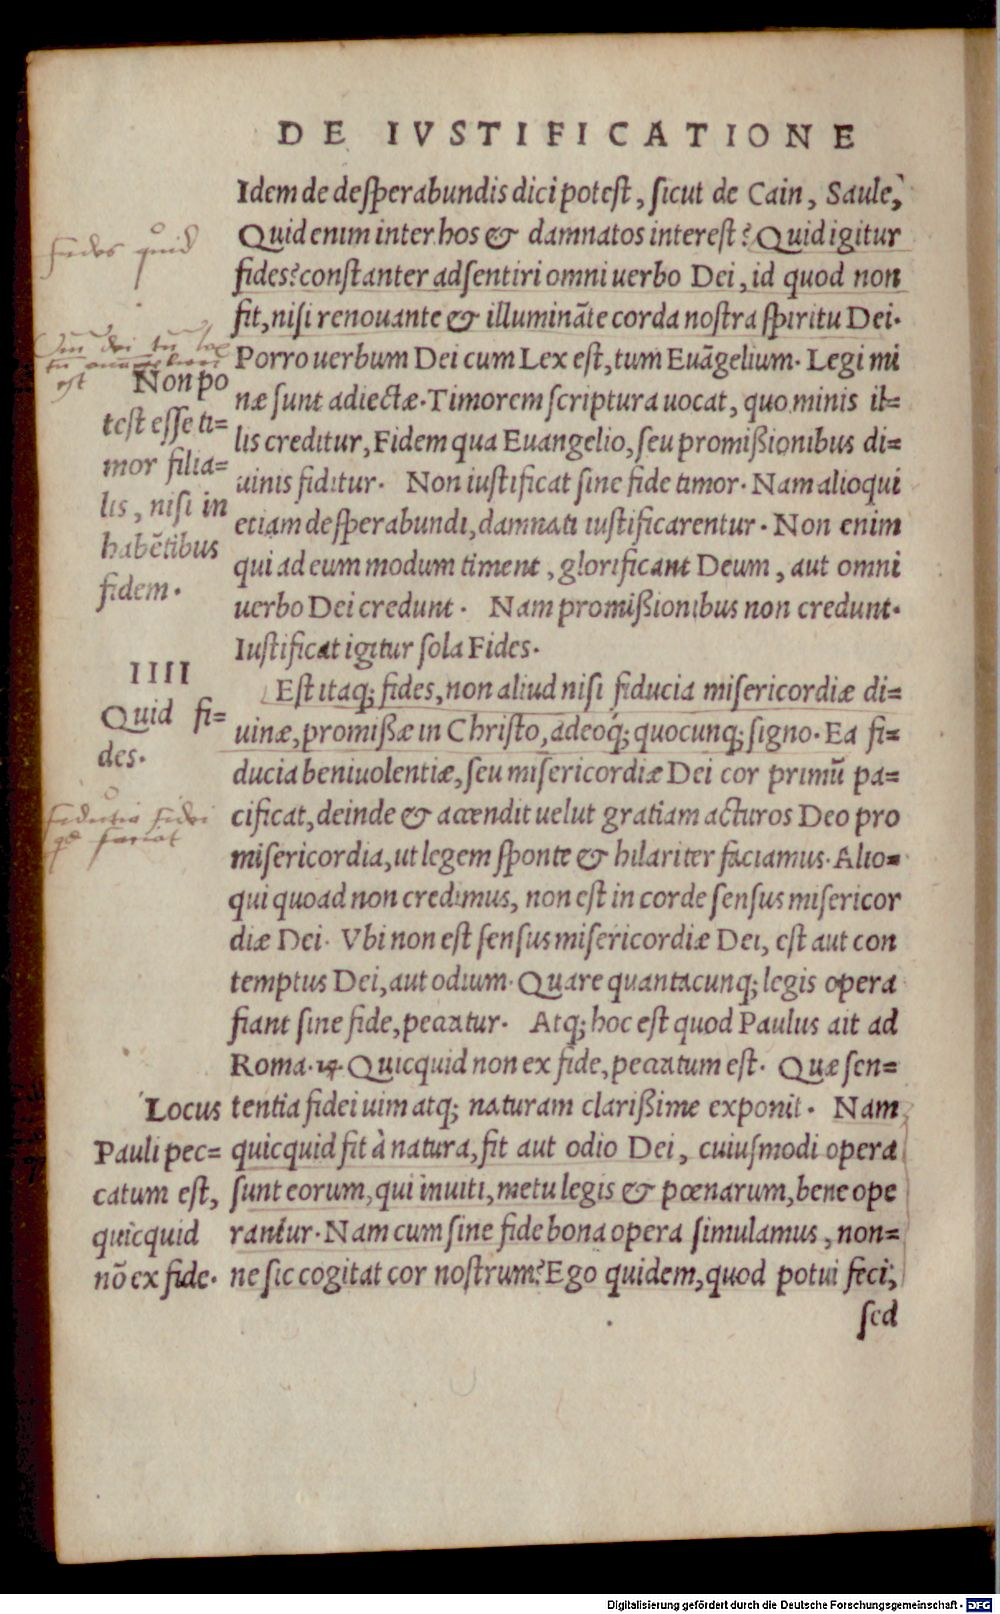 DE IVSTIFICATIONE
Idem de desperabundis dici potest, sicut de Cain, Saule,
Quid enim inter hos & damnatos interest? Quid igitur
fides? constanter adsentiri omni uerbo Dei, id quod non
fit, nisi renouante & illuminãte corda nostra spiritu Dei.
Porro uerbum Dei cum Lex est, tum Euãgelium. Legi mi
næ sunt adiectæ. Timorem scriptura uocat, quo minis il=
lis creditur, Fidem qua Euangelio, seu promißionibus di=
uinis fiditur. Non iustificat sine fide timor. Nam alioqui
etiam desperabundi, damnati iustificarentur. Non enim
qui ad eum modum timent, glorificant Deum, aut omni
uerbo Dei credunt. Nam promißionibus non credunt.
Iustificat igitur sola Fides.
Est itaq; fides, non aliud nisi fiducia misericordiæ di=
uinæ, promißæ in Christo, adeoq́; quocunq; signo. Ea fi=
ducia beniuolentiæ, seu misericordiæ Dei cor primũ pa=
cificat, deinde & accendit uelut gratiam acturos Deo pro
misericordia, ut legem sponte & hilariter faciamus. Alio=
qui quoad non credimus, non est in corde sensus misericor
diæ Dei. Vbi non est sensus misericordiæ Dei, est aut con
temptus Dei, aut odium. Quare quantacunq; legis opera
fiant sine fide, peccatur. Atq; hoc est quod Paulus ait ad
Roma. 14. Quicquid non ex fide, peccatum est. Quæ sen=
tentia fidei uim atq; naturam clarißime exponit. Nam
quicquid fit à natura, fit aut odio Dei, cuiusmodi opera
sunt eorum, qui inuiti, metu legis & pœnarum, bene ope
rantur. Nam cum sine fide bona opera simulamus, non=
ne sic cogitat cor nostrum? Ego quidem, quod potui feci,
sed
fides quid
est
Non po
test esse ti=
mor filia=
lis, nisi in
habẽtibus
fidem.
IIII
Quid fi=
des.
fidutia fidei
Locus
Pauli pec=
catum est,
quicquid
nõ ex fide.
Digitalisierung gefördert durch die Deutsche Forschungsgemeinschaft - DFG